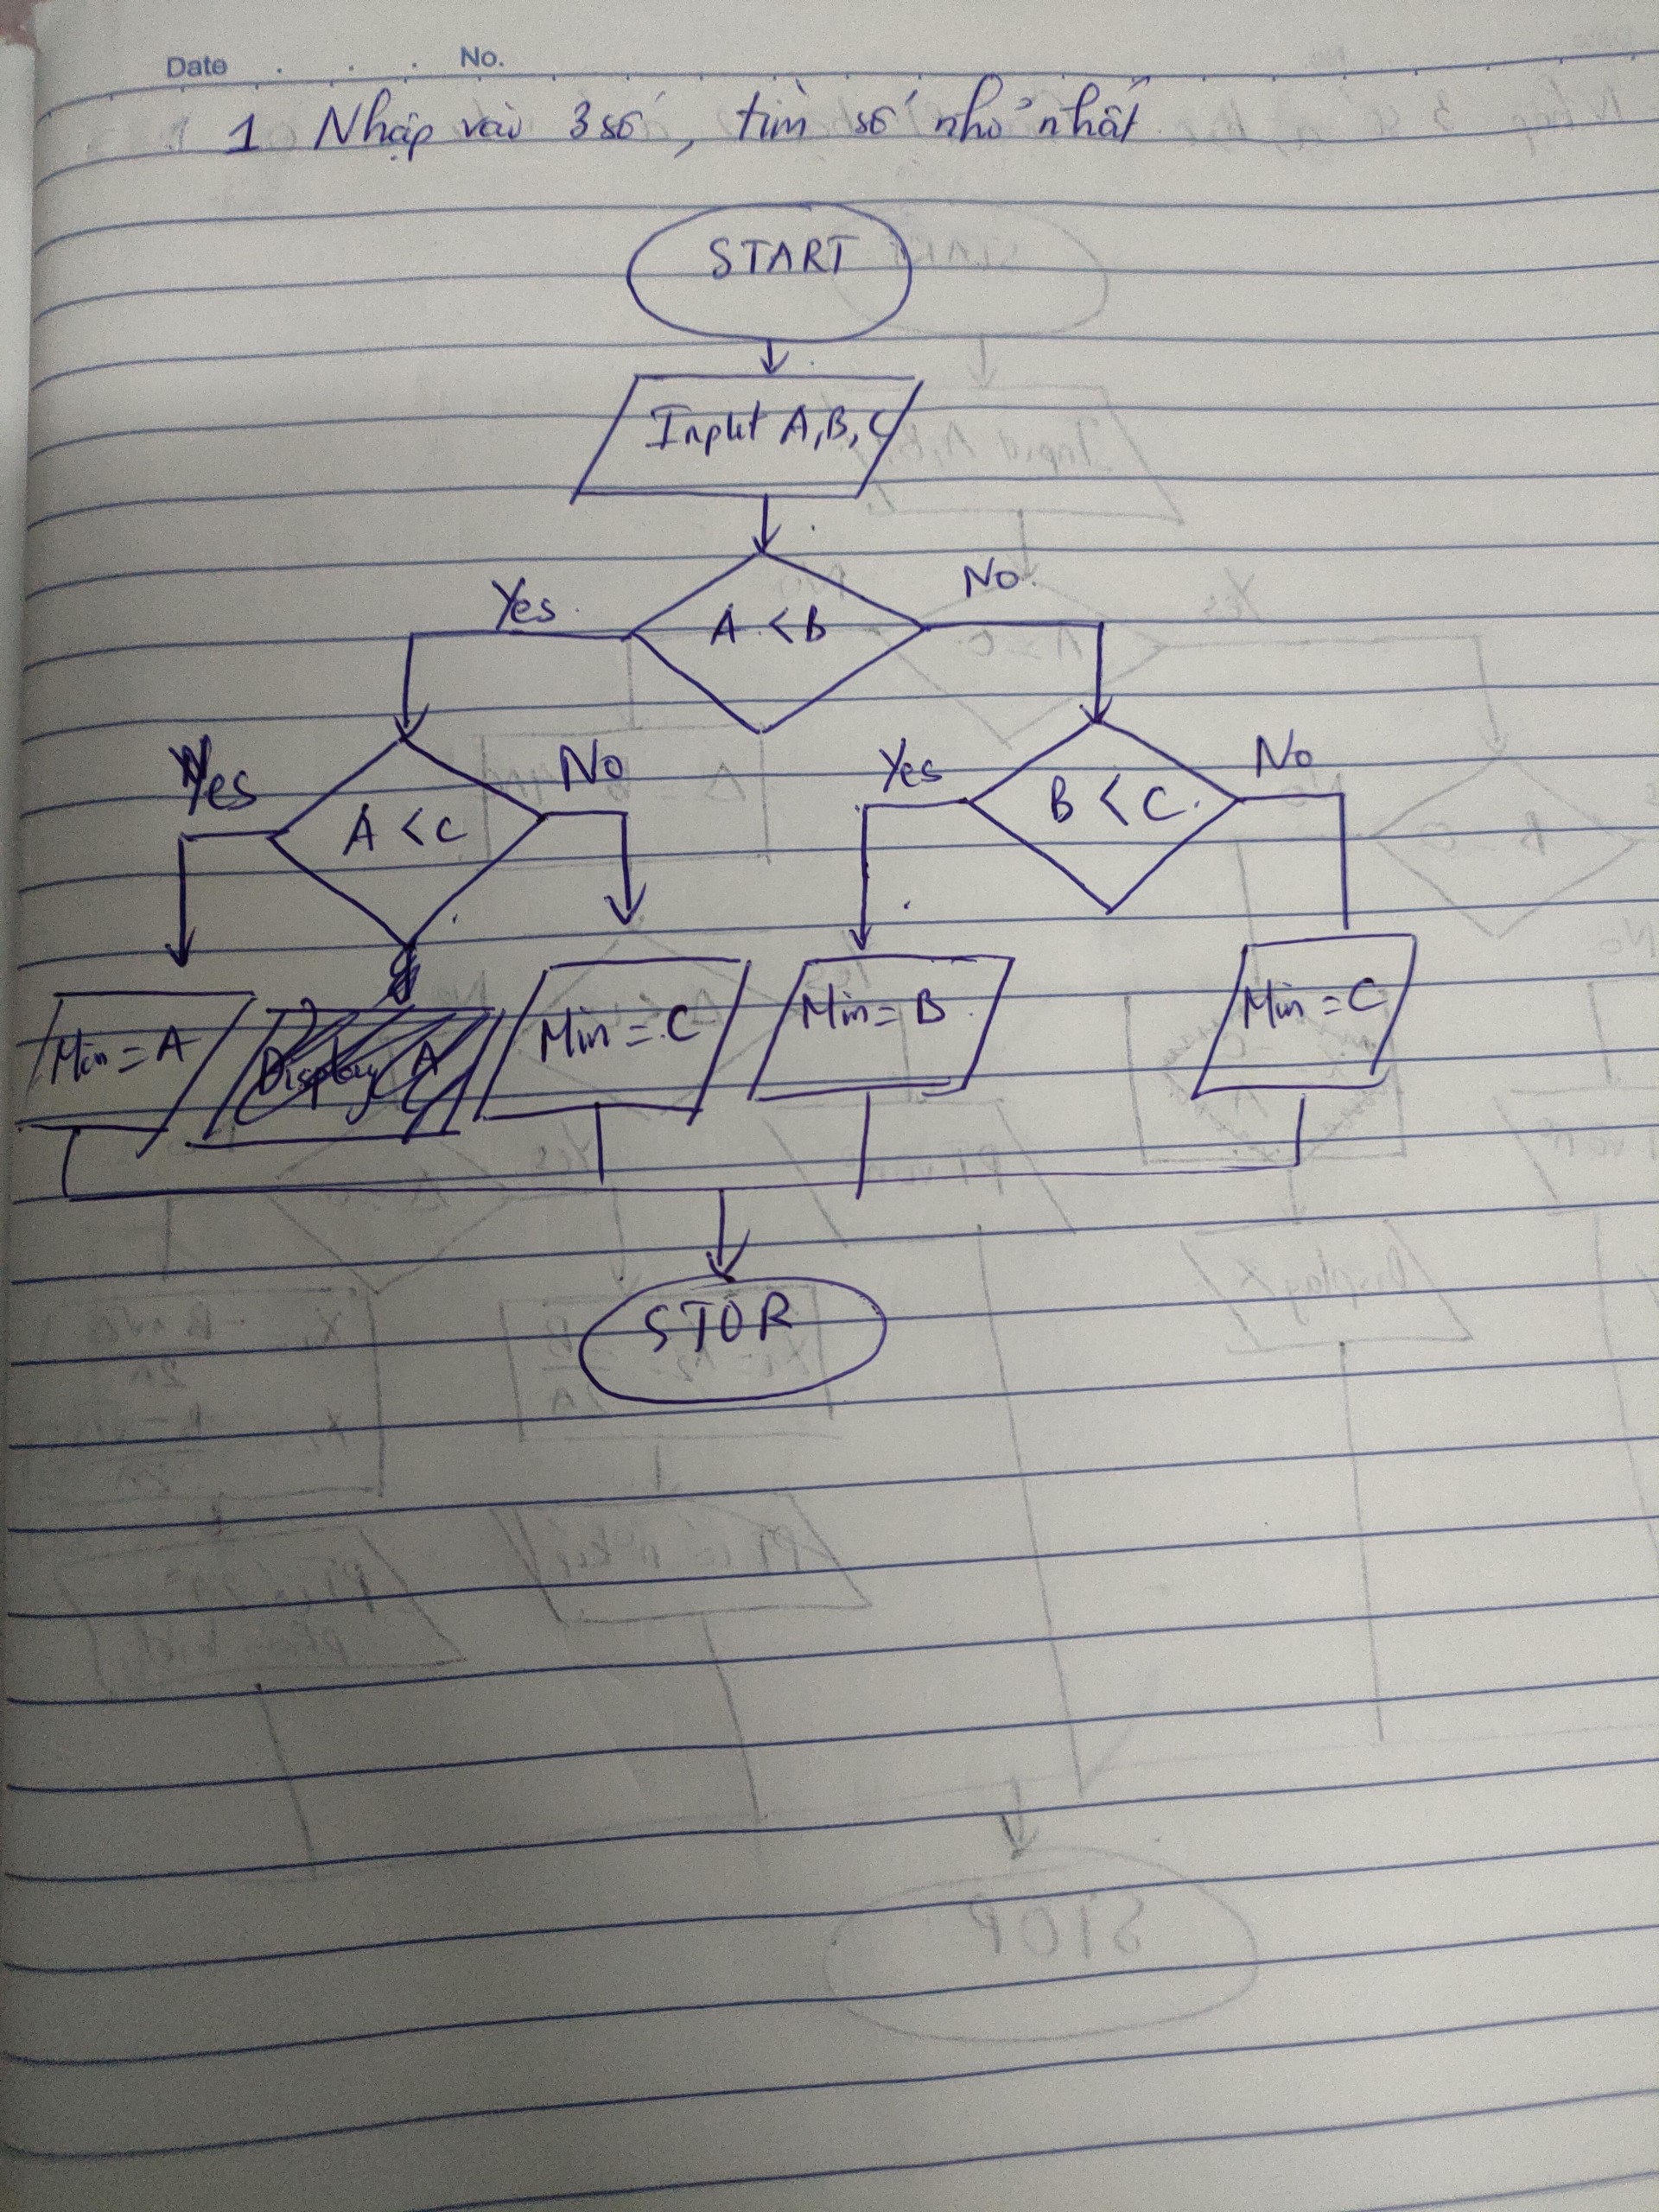 Date . . . No.
1 Nhập vào 3 số, tìm số nhỏ nhất
START
Input A, B, C
Yes No
A < B
Yes No Yes No
A < C B < C
Min = A Display A Min = C Min = B Min = C
STOP